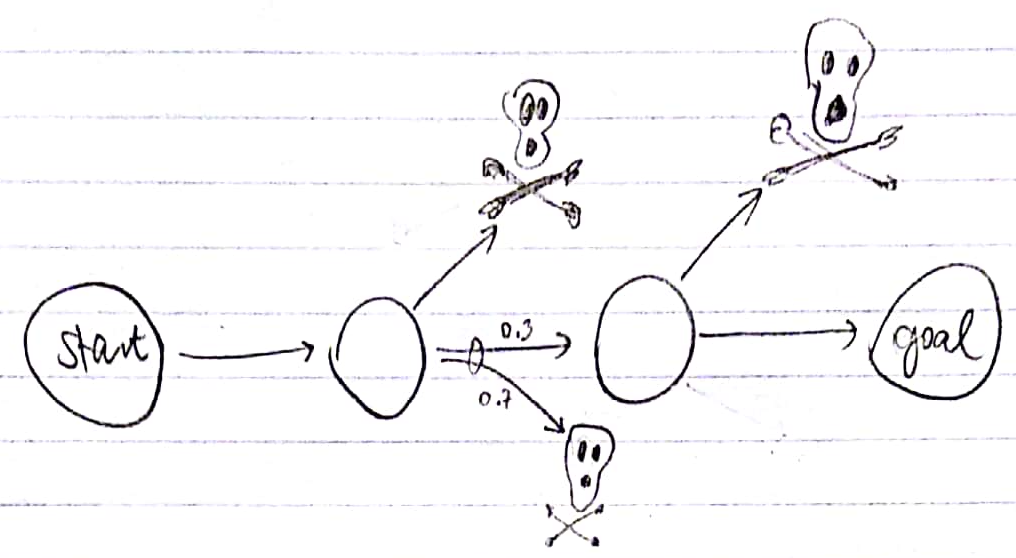 start
0.3
0.7
goal